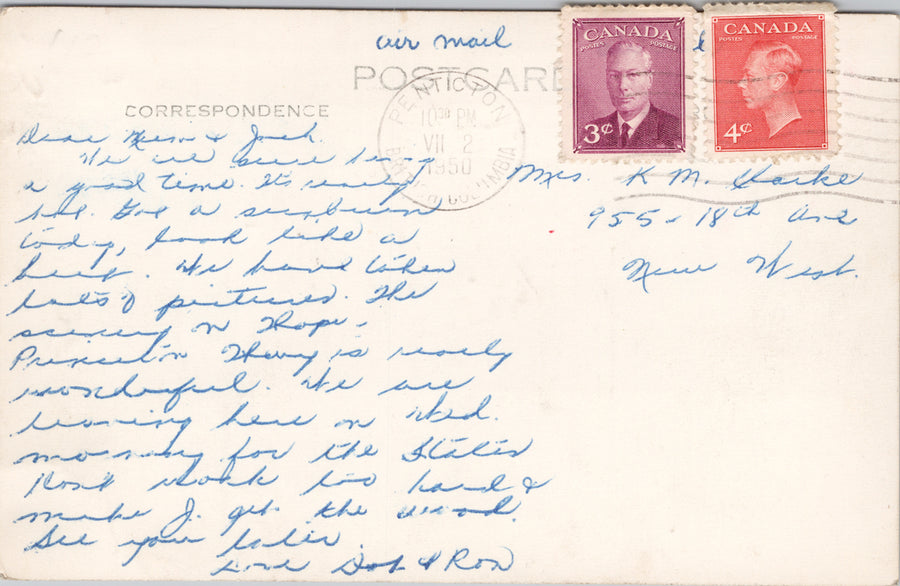 air mail
POSTCARD
CORRESPONDENCE
CANADA
POSTES POSTAGE
3¢
CANADA
POSTES POSTAGE
4¢
PENTICTON
10 30 PM
VII 2
1950
BRITISH COLUMBIA
Dear Mum & Jack.
We are sure having
a good time. It's really
hot. Got a sunburn
today, look like a
beet. We have taken
lots of pictures. The
scenery on Hope-
Princeton Hwy is really
wonderful. We are
leaving here on Wed.
morning for the States
Don't work too hard &
make J. get the wood.
See you later.
Love Dot & Ron
Mrs. K M.
955-18th Ave
New West.